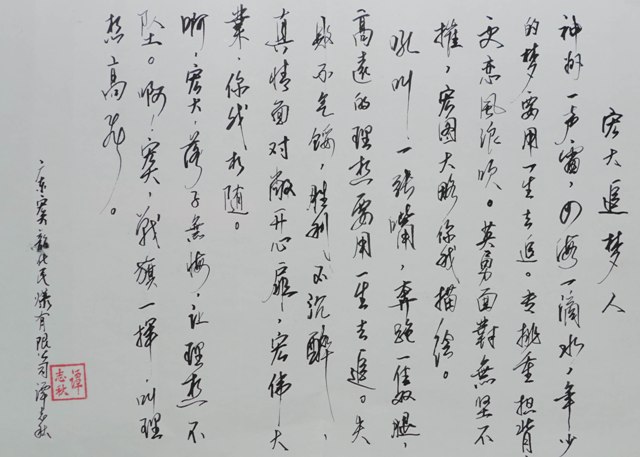 宏大追梦人
神州一声雷，四海一滴水，年少
的梦要用一生去追。专挑重担背，
更恋风浪吹。英勇面對無坚不
摧，宏图大略你我描绘。
吼叫一张嘴，奔跑一双腿，
高遠的理想要用一生去追。失
败不气馁，胜利不沉醉，
真情面对敞开心扉，宏伟大
業，你我相随。
啊，宏大，落子無悔，让理想不
坠。啊！宏大，战旗一揮 叫理
想高飞。
广东宏大韶化民爆有限公司谭志秋
譚志秋